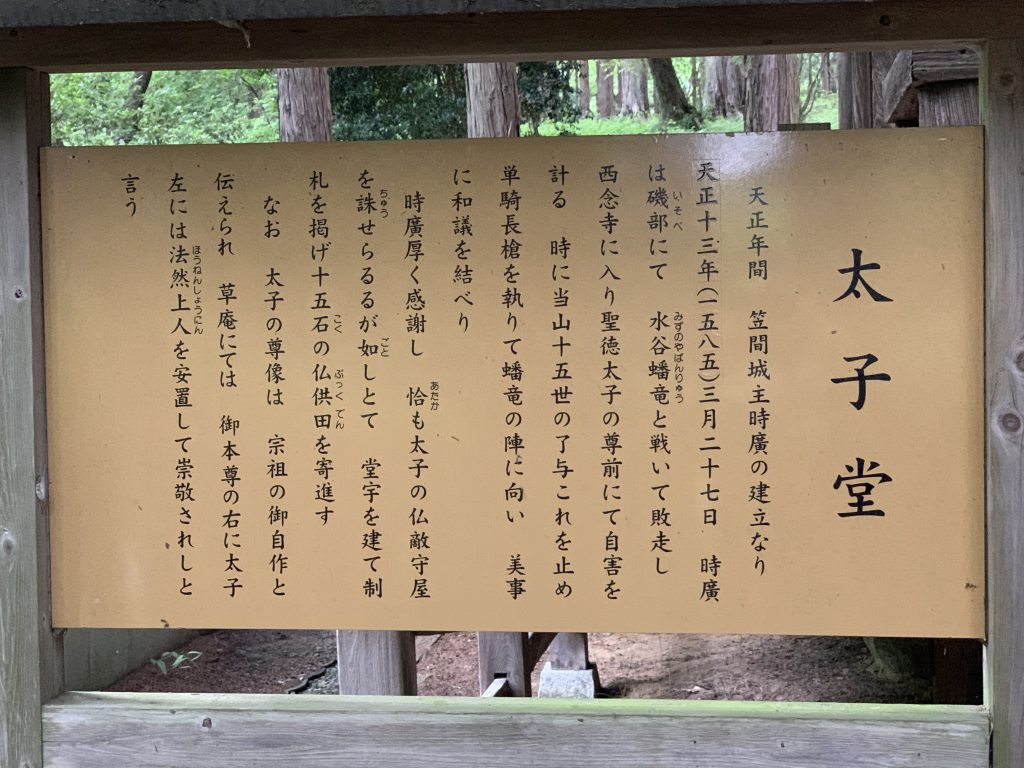 太子堂
天正年間　笠間城主時廣の建立なり
天正十三年（一五八五）三月二十七日　時廣
は磯部にて　水谷蟠竜と戦いて敗走し
いそべ
みずのやばんりゅう
西念寺に入り聖徳太子の尊前にて自害を
計る　時に当山十五世の了与これを止め
単騎長槍を執りて蟠竜の陣に向い　美事
に和議を結べり
時廣厚く感謝し　恰も太子の仏敵守屋
あたか
を誅せらるるが如しとて　堂宇を建て制
ちゅう
ごと
札を掲げ十五石の仏供田を寄進す
こく
ぶっくでん
なお　太子の尊像は　宗祖の御自作と
伝えられ　草庵にては　御本尊の右に太子
左には法然上人を安置して崇敬されしと
ほうねんしょうにん
言う